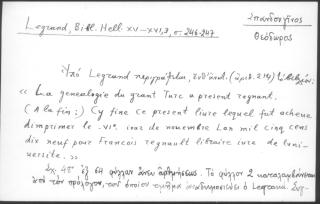 Legrand, Bibl. Hell. XV–XVI,3, σ. 246-247
Σπανδουγῖνος
Θεόδωρος
Ὑπὸ Legrand περιγράφεται, (ἀριθ. 219) τὸ βιβλίον:
« La genealogie du grant Turc a present regnant.
(A la fin:) Cy fine ce present livre lequel fut acheue
dimprimer le .VIe. iour de nouembre Lan mil cinq cens
dix neuf pour francois regnault libraire iure de luni-
uersite. »
Σχ. 4ο ἐξ φύλλων ἄνευ ἀριθμήσεως. Τὸ φύλλον 2 καταλαμβάνεται
ὑπὸ τοῦ προλόγου, τοῦ ὁποίου τμῆμα ὁ Legrand.